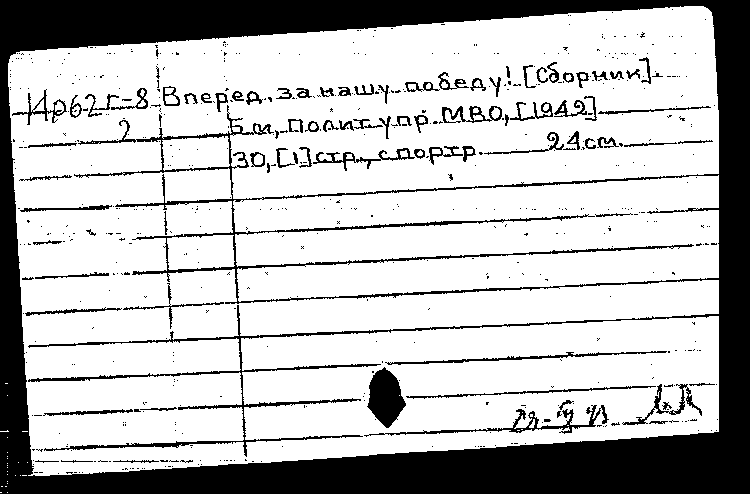 Ир62г-8 Вперед, за нашу победу! [Сборник].
2 Б.м, Полит.упр. МВО, [1942]
30, [1] стр., с портр. 24 см.